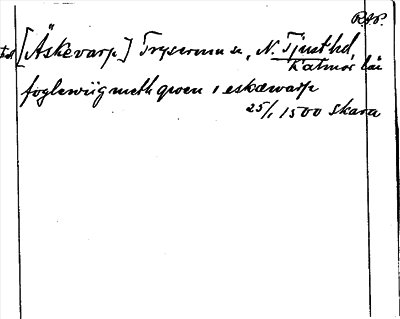 R.A.P.
[Äskevarp] Tryserums sn, N. Tjust hd,
Kalmar län
foglewiig meth qwen i eskæwarp
25/1 1500 Skara